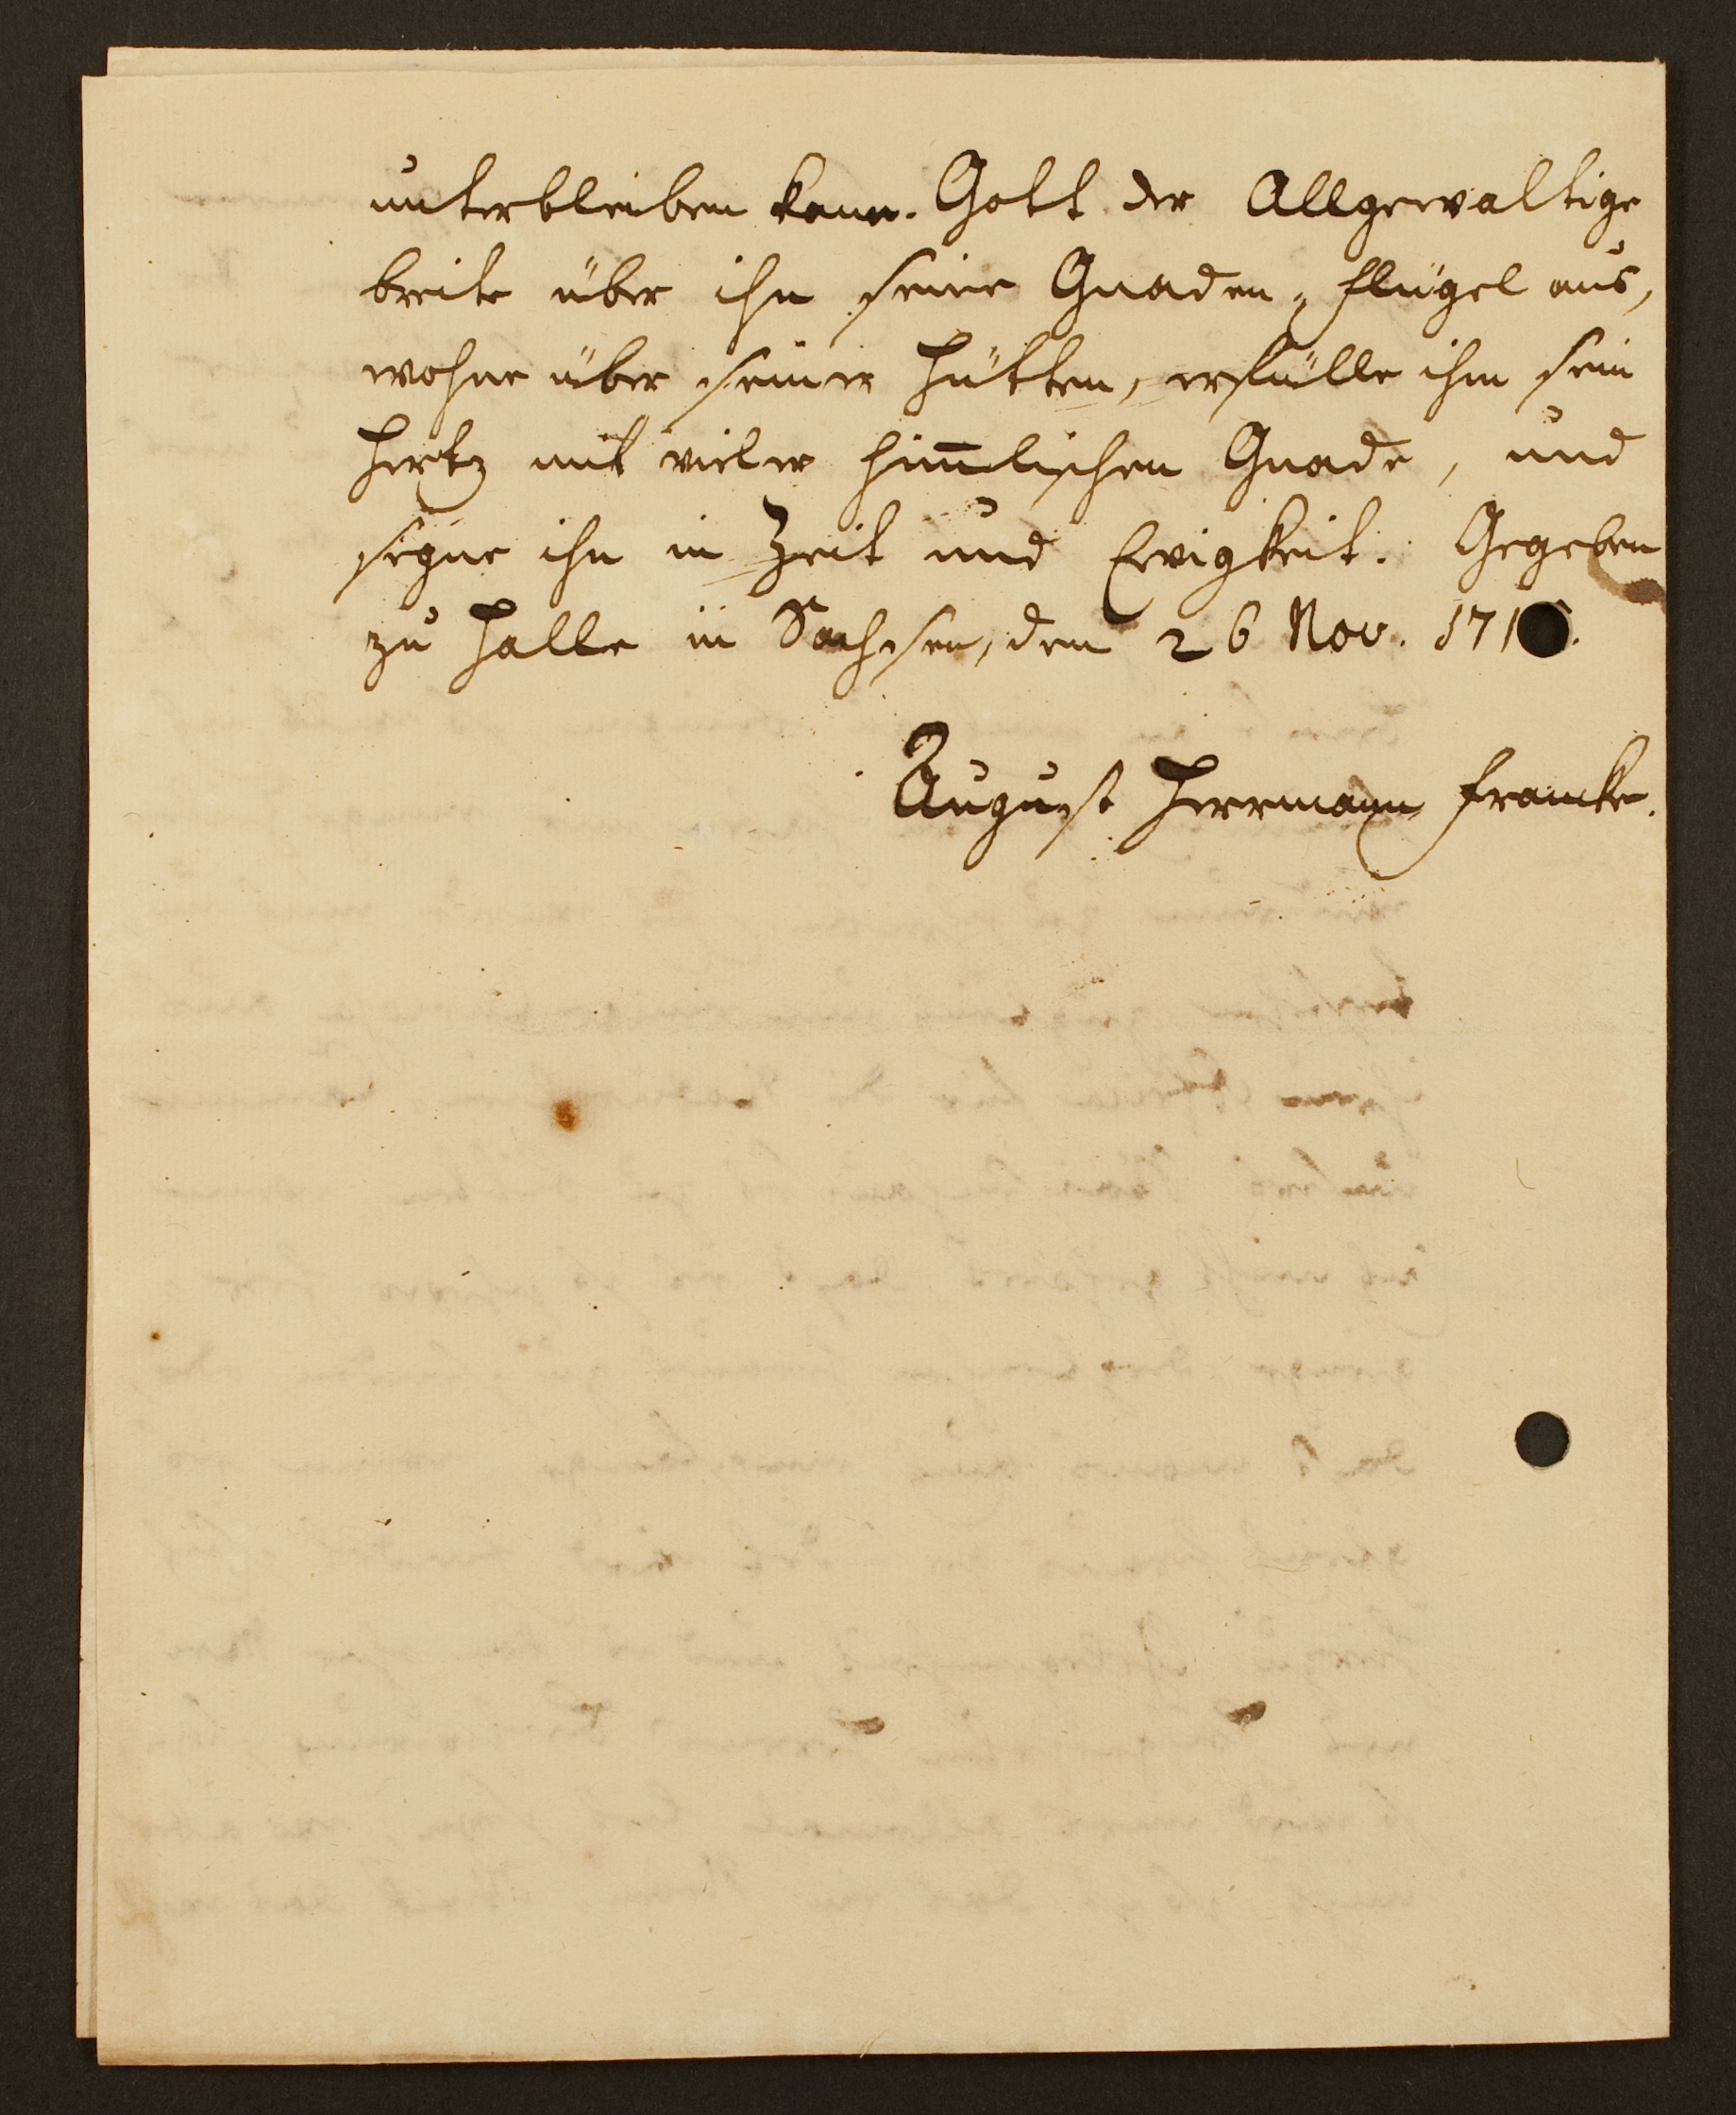 unterbleiben kann. Gott der Allgewaltige
breite über ihn seine Gnaden-flügel aus,
wohne über seiner Hütten, erfülle ihm sein
Hertz mit vieler him̄lischen Gnade, und
segne ihn in Zeit und Ewigkeit. Gegeben
zu Halle in Sachsen, den 26 Nov.
August Herrmann Francke.